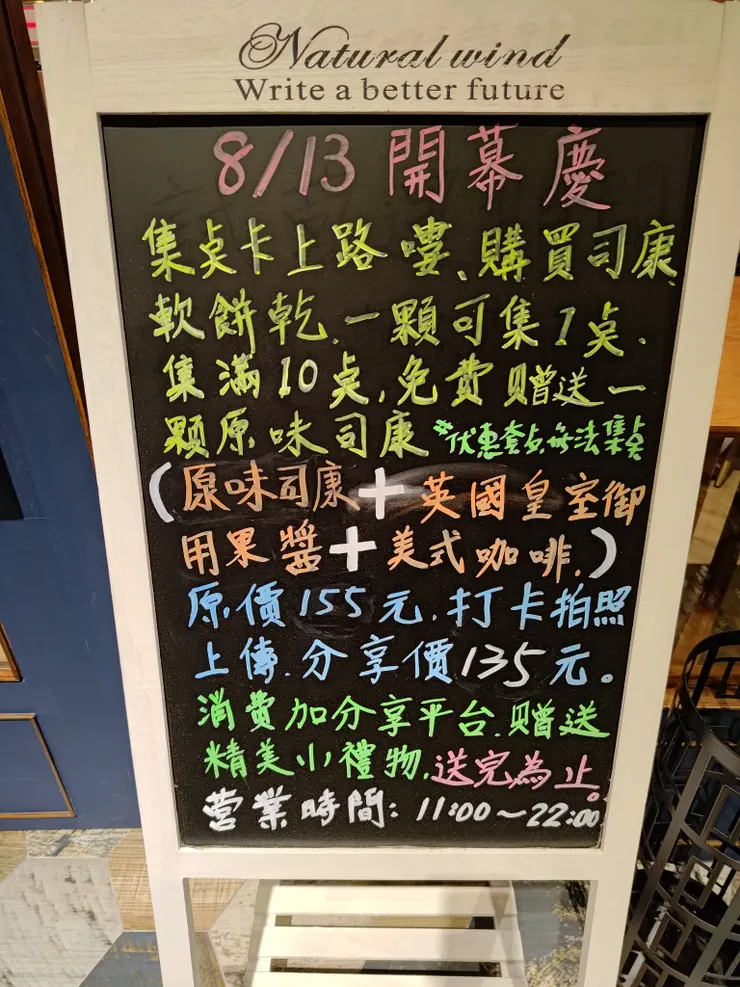 Natural wind
Write a better future
8/13 開幕慶
集点卡上路嘍、購買司康
軟餅乾.一顆可集1点.
集滿10点,免費贈送一
顆原味司康 *优惠套点無法集点
(原味司康+英國皇室御
用果醬+美式咖啡.)
原價155元.打卡拍照
上傳.分享價135元。
消費加分享平台.贈送
精美小禮物,送完為止。
营業時間: 11:00~22:00